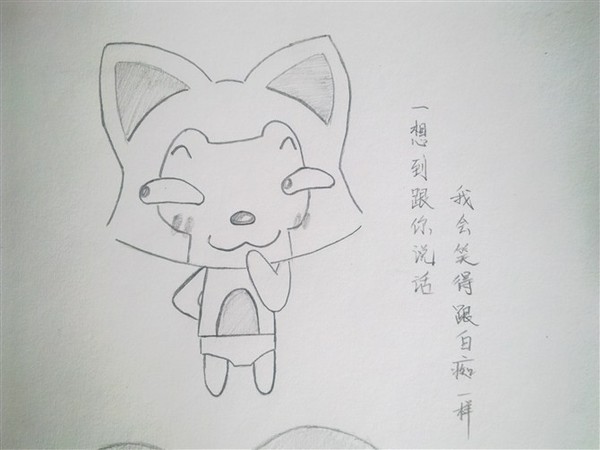 一想到跟你说话
我会笑得跟白痴一样